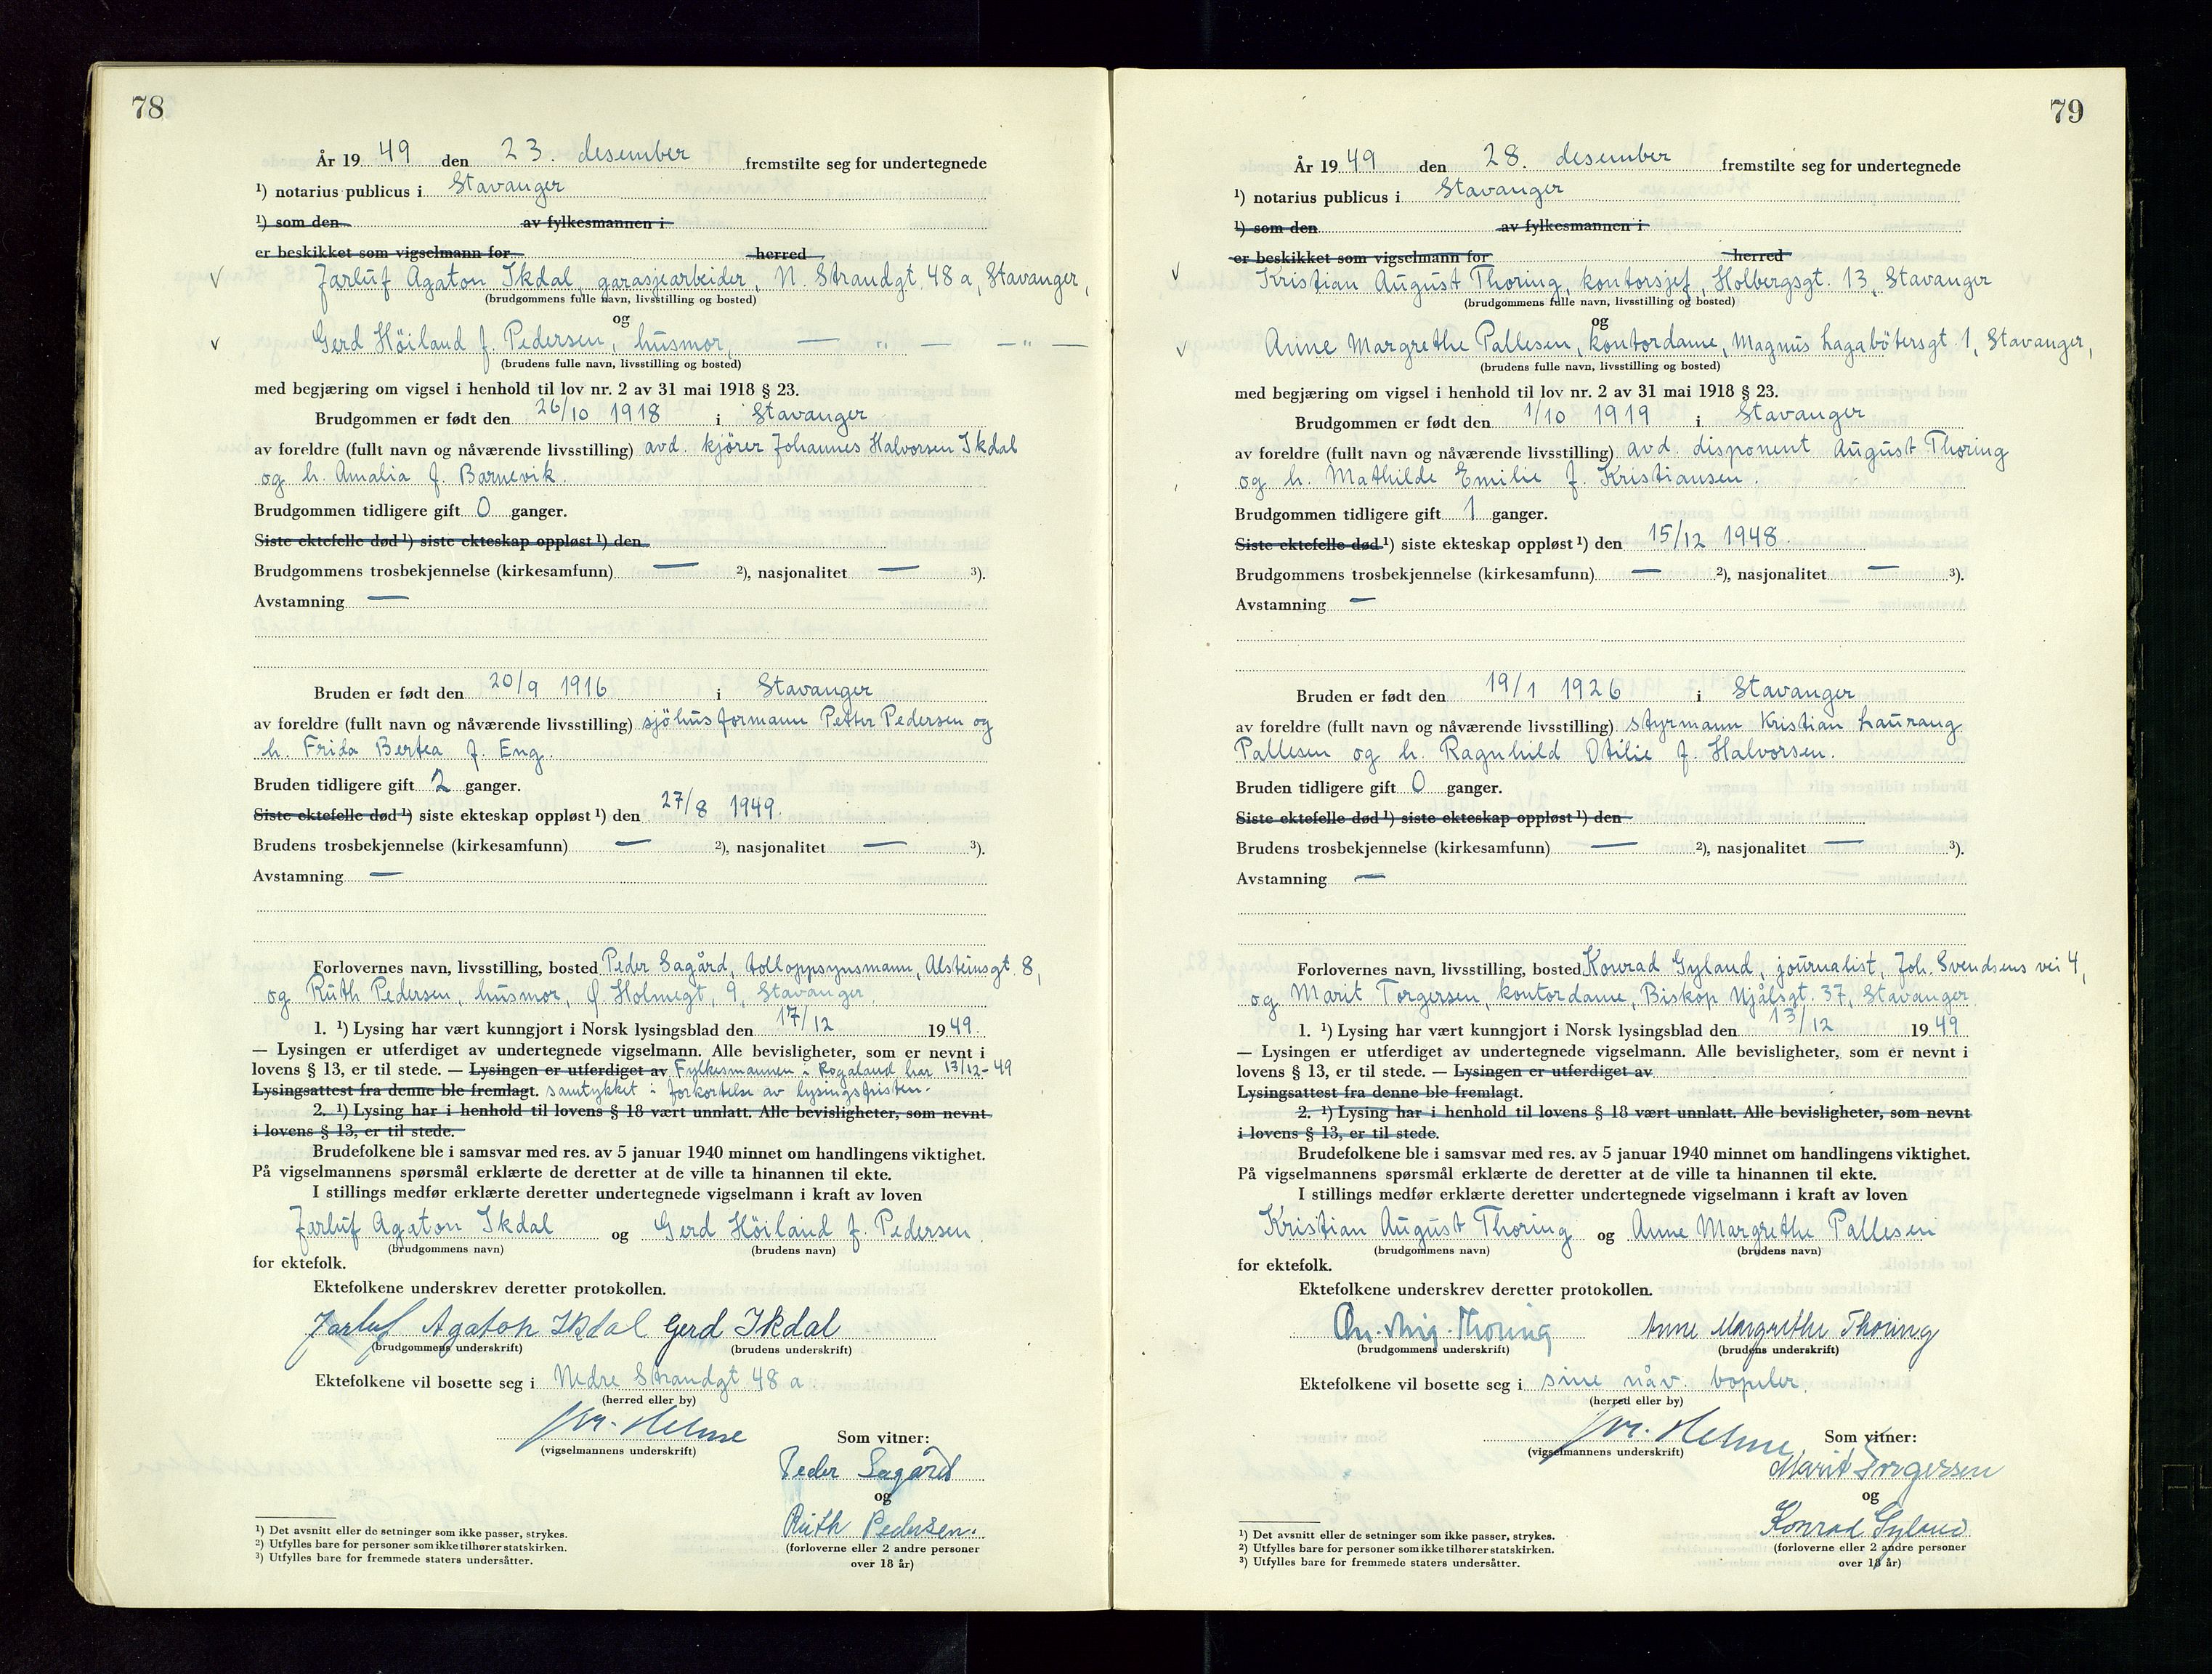 78
År 19 49 den 23. desember fremstilte seg for undertegnede
¹) notarius publicus i Stavanger
¹) som den av fylkesmannen i
er beskikket som vigselmann for herred
√ Jarluf Agaton Ikdal, garasjearbeider, N. Strandgt. 48 a, Stavanger,
(brudgommens fulle navn, livsstilling og bosted)
og
√ Gerd Höiland f. Pedersen, husmor, — " — — " —
(brudens fulle navn, livsstilling og bosted)
med begjæring om vigsel i henhold til lov nr. 2 av 31 mai 1918 § 23.
Brudgommen er født den 26/10 1918 i Stavanger
av foreldre (fullt navn og nåværende livsstilling) avd. kjörer Johannes Halvorsen Ikdal
og h. Amalia f. Barnevik.
Brudgommen tidligere gift 0 ganger.
Siste ektefelle død ¹) siste ekteskap oppløst ¹) den
Brudgommens trosbekjennelse (kirkesamfunn) — ²), nasjonalitet — ³).
Avstamning —
Bruden er født den 20/9 1916 i Stavanger
av foreldre (fullt navn og nåværende livsstilling) sjöhusformann Petter Pedersen og
h. Frida Bertea f. Eng.
Bruden tidligere gift 2 ganger.
Siste ektefelle død ¹) siste ekteskap oppløst ¹) den 27/8 1949.
Brudens trosbekjennelse (kirkesamfunn) — ²), nasjonalitet — ³).
Avstamning —
Forlovernes navn, livsstilling, bosted Peder Sagård, tolloppsynsmann, Alsteinsgt. 8,
og Ruth Pedersen, husmor, Ø. Holmegt, 9, Stavanger.
1. ¹) Lysing har vært kunngjort i Norsk lysingsblad den 17/12 19 49.
— Lysingen er utferdiget av undertegnede vigselmann. Alle bevisligheter, som er nevnt i
lovens § 13, er til stede. — Lysingen er utferdiget av Fylkesmannen i Rogaland har 13/12-49
Lysingsattest fra denne ble fremlagt. samtykket i forkortelse av lysingsfristen.
2. ¹) Lysing har i henhold til lovens § 18 vært unnlatt. Alle bevisligheter, som nevnt
i lovens § 13, er til stede.
Brudefolkene ble i samsvar med res. av 5 januar 1940 minnet om handlingens viktighet.
På vigselmannens spørsmål erklærte de deretter at de ville ta hinannen til ekte.
I stillings medfør erklærte deretter undertegnede vigselmann i kraft av loven
Jarluf Agaton Ikdal og Gerd Höiland f. Pedersen
(brudgommens navn) (brudens navn)
for ektefolk.
Ektefolkene underskrev deretter protokollen.
Jarluf Agaton Ikdal Gerd Ikdal
(brudgommens underskrift) (brudens underskrift)
Ektefolkene vil bosette seg i Nedre Strandgt 48 a
(herred eller by)
Helme
(vigselmannens underskrift)
Som vitner:
Peder Sagård
og
Ruth Pedersen.
(forloverne eller 2 andre personer
over 18 år)
¹) Det avsnitt eller de setninger som ikke passer, strykes.
²) Utfylles bare for personer som ikke tilhører statskirken.
³) Utfylles bare for fremmede staters undersåtter.
79
År 19 49 den 28. desember fremstilte seg for undertegnede
¹) notarius publicus i Stavanger
¹) som den av fylkesmannen i
er beskikket som vigselmann for herred
√ Kristian August Thoring, kontorsjef, Holbergsgt. 13, Stavanger
(brudgommens fulle navn, livsstilling og bosted)
og
√ Anne Margrethe Pallesen, kontordame, Magnus Lagabötersgt. 1, Stavanger,
(brudens fulle navn, livsstilling og bosted)
med begjæring om vigsel i henhold til lov nr. 2 av 31 mai 1918 § 23.
Brudgommen er født den 1/10 1919 i Stavanger
av foreldre (fullt navn og nåværende livsstilling) avd. disponent August Thoring
og h. Mathilde Emilie f. Kristiansen.
Brudgommen tidligere gift 1 ganger.
Siste ektefelle død ¹) siste ekteskap oppløst ¹) den 15/12 1948.
Brudgommens trosbekjennelse (kirkesamfunn) — ²), nasjonalitet — ³).
Avstamning —
Bruden er født den 19/1 1926 i Stavanger
av foreldre (fullt navn og nåværende livsstilling) styrmann Kristian Laurang
Pallesen og h. Ragnhild Otilie f. Halvorsen.
Bruden tidligere gift 0 ganger.
Siste ektefelle død ¹) siste ekteskap oppløst ¹) den
Brudens trosbekjennelse (kirkesamfunn) — ²), nasjonalitet — ³).
Avstamning —
Forlovernes navn, livsstilling, bosted Konrad Gyland, journalist, Joh. Svendsens vei 4,
og Marit Torgersen, kontordame, Biskop Njålsgt. 37, Stavanger.
1. ¹) Lysing har vært kunngjort i Norsk lysingsblad den 13/12 19 49
— Lysingen er utferdiget av undertegnede vigselmann. Alle bevisligheter, som er nevnt i
lovens § 13, er til stede. — Lysingen er utferdiget av
Lysingsattest fra denne ble fremlagt.
2. ¹) Lysing har i henhold til lovens § 18 vært unnlatt. Alle bevisligheter, som nevnt
i lovens § 13, er til stede.
Brudefolkene ble i samsvar med res. av 5 januar 1940 minnet om handlingens viktighet.
På vigselmannens spørsmål erklærte de deretter at de ville ta hinannen til ekte.
I stillings medfør erklærte deretter undertegnede vigselmann i kraft av loven
Kristian August Thoring og Anne Margrethe Pallesen
(brudgommens navn) (brudens navn)
for ektefolk.
Ektefolkene underskrev deretter protokollen.
Thoring Anne Margrethe Thoring
(brudgommens underskrift) (brudens underskrift)
Ektefolkene vil bosette seg i sine nåv. bopeler.
(herred eller by)
Helme
(vigselmannens underskrift)
Som vitner:
Marit Torgersen
og
Konrad Gyland
(forloverne eller 2 andre personer
over 18 år)
¹) Det avsnitt eller de setninger som ikke passer, strykes.
²) Utfylles bare for personer som ikke tilhører statskirken.
³) Utfylles bare for fremmede staters undersåtter.